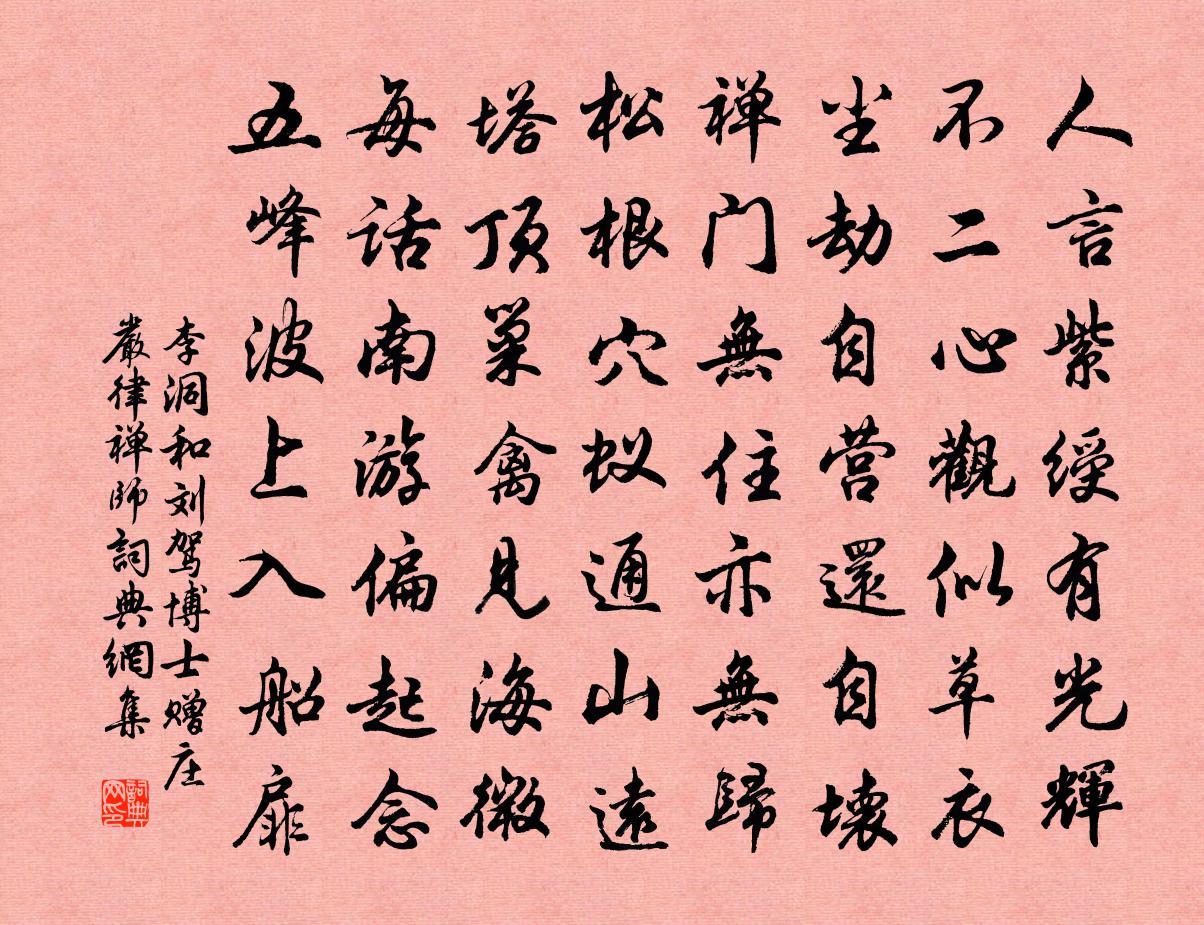 人言紫绶有光輝
不二心觀似草衣
尘劫自营還自壊
禅门無住亦無歸
松根穴蚁通山遠
塔顶巢禽見海微
每话南游偏起念
五峰波上入船扉
李洞和刘驾博士赠庄
嚴律禅師詞典網集
詞典
网印